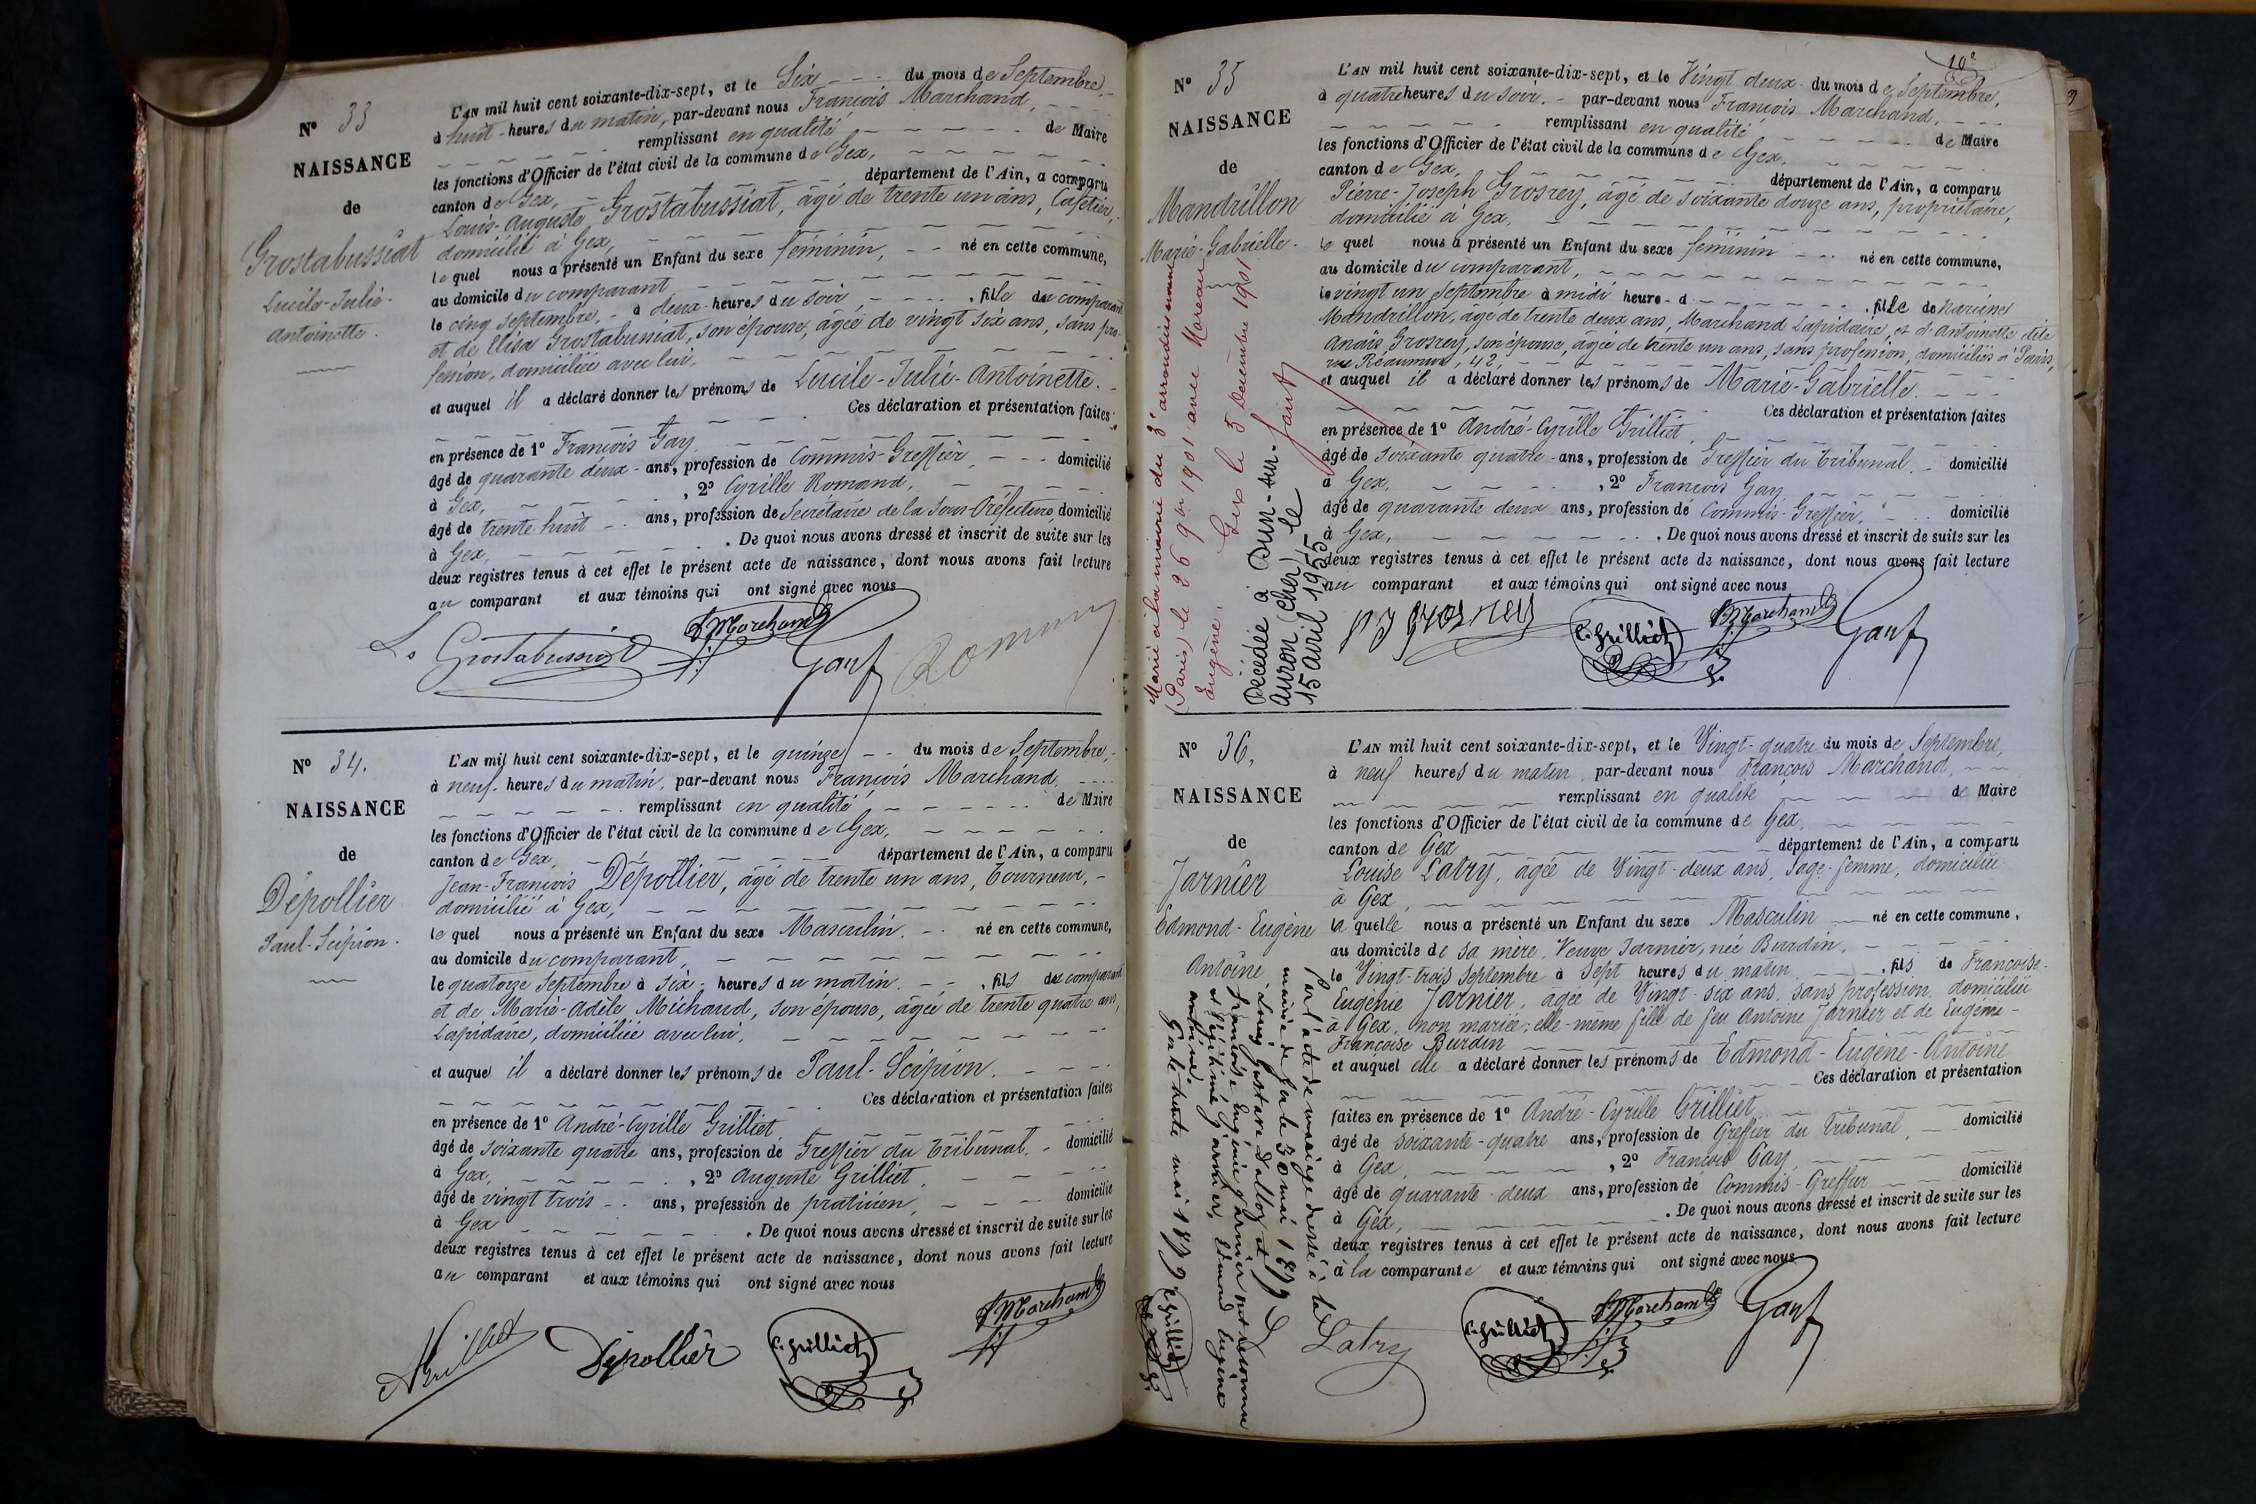 N° 33
NAISSANCE
de
Grostabussiat
Lucile-Julie-
Antoinette.
L'AN mil huit cent soixante-dix-sept, et le Six du mois de Septembre,
à huit heures du matin, par-devant nous François Marchand,
remplissant en qualité de Maire
les fonctions d'Officier de l'état civil de la commune de Gex,
canton de Gex, département de l'Ain, a comparu
Louis-Auguste Grostabussiat, âgé de trente un ans, Cafetier,
domicilié à Gex,
lequel nous a présenté un Enfant du sexe féminin, né en cette commune,
au domicile du comparant,
le cinq septembre, à deux heures du soir, fille du comparant
et de Elisa Grostabussiat, son épouse, âgée de vingt six ans, sans pro-
fession, domiciliée avec lui,
et auquel il a déclaré donner les prénoms de Lucile-Julie-Antoinette.
Ces déclaration et présentation faites
en présence de 1° François Gay
âgé de quarante deux ans, profession de Commis-Greffier, domicilié
à Gex, , 2° Cyrille Romand,
âgé de trente huit ans, profession de Secrétaire de la Sous-Préfecture, domicilié
à Gex, . De quoi nous avons dressé et inscrit de suite sur les
deux registres tenus à cet effet le présent acte de naissance, dont nous avons fait lecture
au comparant et aux témoins qui ont signé avec nous
L. Grostabussiat
F. Marchand
Gay
Romand
N° 34.
NAISSANCE
de
Dépollier
Paul-Scipion.
L'AN mil huit cent soixante-dix-sept, et le quinze du mois de Septembre,
à neuf heures du matin, par-devant nous François Marchand,
remplissant en qualité de Maire
les fonctions d'Officier de l'état civil de la commune de Gex,
canton de Gex, département de l'Ain, a comparu
Jean-François Dépollier, âgé de trente un ans, Tourneur,
domicilié à Gex,
lequel nous a présenté un Enfant du sexe Masculin. né en cette commune,
au domicile du comparant,
le quatorze Septembre à six heures du matin. , fils du comparant
et de Marie-Adèle Michaud, son épouse, âgée de trente quatre ans,
Lapidaire, domiciliée avec lui,
et auquel il a déclaré donner les prénoms de Paul-Scipion.
Ces déclaration et présentation faites
en présence de 1° André-Cyrille Grilliet
âgé de soixante quatre ans, profession de Greffier du Tribunal. domicilié
à Gex, , 2° Auguste Grilliet,
âgé de vingt trois ans, profession de praticien, domicilié
à Gex . De quoi nous avons dressé et inscrit de suite sur les
deux registres tenus à cet effet le présent acte de naissance, dont nous avons fait lecture
au comparant et aux témoins qui ont signé avec nous
AGrilliet
Dépollier
C. Grilliet
F. Marchand
N° 35
NAISSANCE
de
Mandrillon
Marie-Gabrielle.
L'AN mil huit cent soixante-dix-sept, et le Vingt deux du mois de Septembre,
à quatre heures du soir. par-devant nous François Marchand,
remplissant en qualité de Maire
les fonctions d'Officier de l'état civil de la commune de Gex,
canton de Gex, département de l'Ain, a comparu
Pierre-Joseph Grosrey, âgé de soixante douze ans, propriétaire,
domicilié à Gex,
lequel nous a présenté un Enfant du sexe féminin né en cette commune,
au domicile du comparant,
le vingt un Septembre à midi heure d , fille de Marine
Mandrillon, âgé de trente deux ans, Marchand Lapidaire, et d'Antoinette dite
Anaïs Grosrey, son épouse, âgée de trente un ans, sans profession, domiciliés à Paris,
rue Réaumur, 42,
et auquel il a déclaré donner les prénoms de Marie-Gabrielle.
Ces déclaration et présentation faites
en présence de 1° André-Cyrille Grilliet,
âgé de soixante quatre ans, profession de Greffier du Tribunal. domicilié
à Gex, , 2° François Gay
âgé de quarante deux ans, profession de Commis-Greffier, domicilié
à Gex, . De quoi nous avons dressé et inscrit de suite sur les
deux registres tenus à cet effet le présent acte de naissance, dont nous avons fait lecture
au comparant et aux témoins qui ont signé avec nous
Marié à la mairie du 3e arrondissement
(Paris) le 26 9bre 1901 avec
Eugène. Gex le 5 Décembre 1901
Décédée à Dun-sur-
Auron (Cher) le
15 avril 1955
P J grosrey
C. Grilliet
F. Marchand
Gay
N° 36,
NAISSANCE
de
Jarnier
Edmond-Eugène
Antoine
L'AN mil huit cent soixante-dix-sept, et le Vingt-quatre du mois de Septembre,
à neuf heures du matin par-devant nous François Marchand,
remplissant en qualité de Maire
les fonctions d'Officier de l'état civil de la commune de Gex
canton de Gex département de l'Ain, a comparu
Louise Latry, âgée de Vingt-deux ans, Sage-femme, domiciliée
à Gex,
laquelle nous a présenté un Enfant du sexe Masculin né en cette commune,
au domicile de sa mère, Veuve Jarnier, née Burdin,
le Vingt-trois Septembre à Sept heures du matin , fils de Françoise-
Eugénie Jarnier, âgée de Vingt-six ans, sans profession, domiciliée
à Gex, non mariée; elle-même fille de feu Antoine Jarnier et de Eugénie-
Françoise Burdin
et auquel elle a déclaré donner les prénoms de Edmond-Eugène-Antoine
Ces déclaration et présentation
faites en présence de 1° André-Cyrille Grilliet
âgé de soixante-quatre ans, profession de Greffier du Tribunal, domicilié
à Gex, , 2° François Gay,
âgé de quarante deux ans, profession de Commis-Greffier domicilié
à Gex, . De quoi nous avons dressé et inscrit de suite sur les
deux registres tenus à cet effet le présent acte de naissance, dont nous avons fait lecture
à la comparante et aux témoins qui ont signé avec nous
Par l'acte de mariage dressé à la
mairie de Gex le 30 mai 1879
Louis Gustave Dalloz et
Françoise Eugénie Jarnier ont reconnu
et légitimé Jarnier, Edmond Eugène
antoine.
Gex le trente mai 1879.
C. Grilliet
Latry
C. Grilliet
F. Marchand
Gay